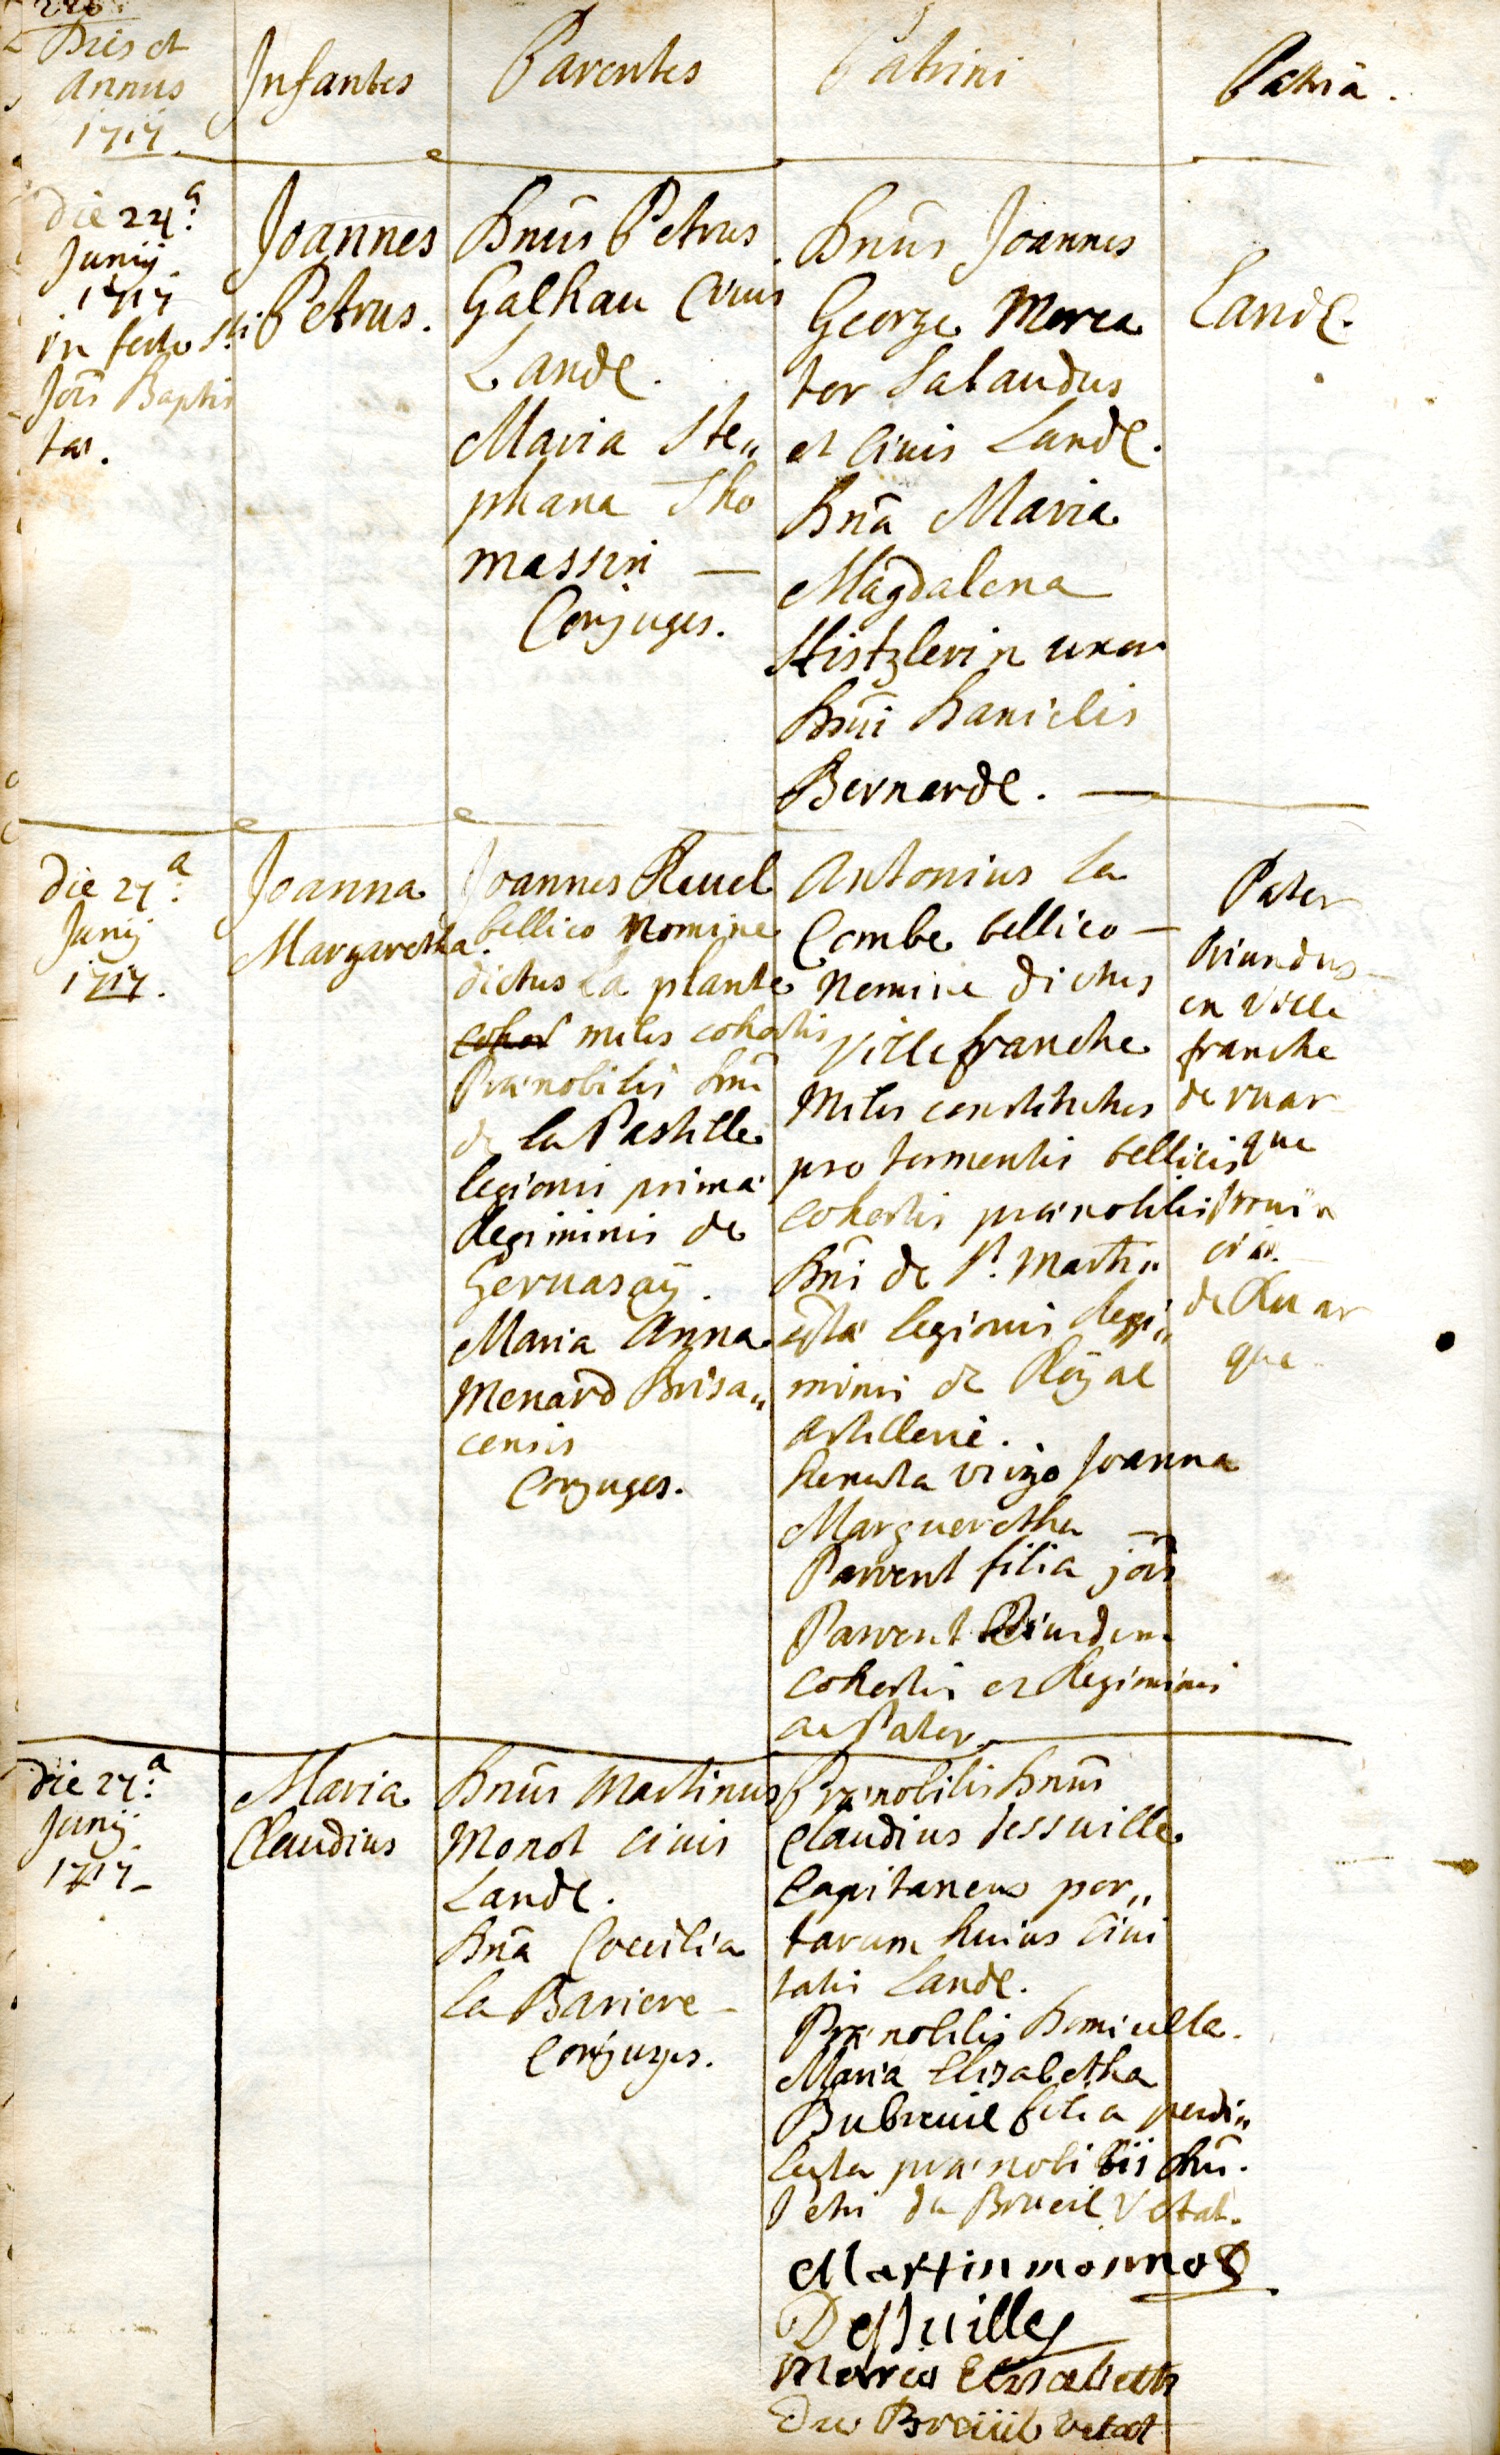 Dies et
Annus
1717.
Infantes
Parentes
Patrini
Patria.
die 24a:
Junij
1717
in festo Sti
Jois Baptis
tae.
Joannes
Petrus.
Dnus Petrus
Galhau Civis
Landl.
Maria Ste„
phana Tho
massin —
Conjuges.
Dnus Joannes
George Merca
tor Sabaudus
et Civis Landl.
Dna Maria
Magdalena
Histzlerin uxor
Dni Danielis
Bernardl. —
Landl.
die 27a:
Junij
1717.
Joanna
Margaretha.
Joannes Reuel
bellico Nomine
dictus La plante
miles cohortis
Praenobilis Dni
de la Pastelle
legionis primae
Regiminis de
Geruasaÿ.
Maria Anna
Menard Brisa„
censis
Conjuges.
Antonius La
Combe bellico —
Nomine dictus
Villefranche
Miles constitutus
pro tormentis bellicis
cohortis praenobilis
Dni de St. Marti„
legionis Regi„
minis de Roÿal
Artillerie.
Renata Virgo Joanna
Margueretha —
Parvent filia jois
Parvent Eiusdem
cohortis et Regiminis
ac Pater.
Pater
Oriundus
en Ville
franche
de ruar
que
Prouin
ciae
de Ruar
que.
die 27a:
Junij
1717
Maria
Claudius
Dnus Martinus
Monot Civis
Landl.
Dna Coecilia
La Bariere
Conjuges.
Praenobilis Dnus
Claudius Dessuille
Capitaneus por„
tarum huius Civi
tatis Landl.
Praenobilis Domicella
Maria Elisabetha
Dubreuil filia perdi„
lecta praenobilis Dni.
du Brueil Vetat.
Martin monnot
Desſuilles
Maria Elisabeth
Du Breüil vetat